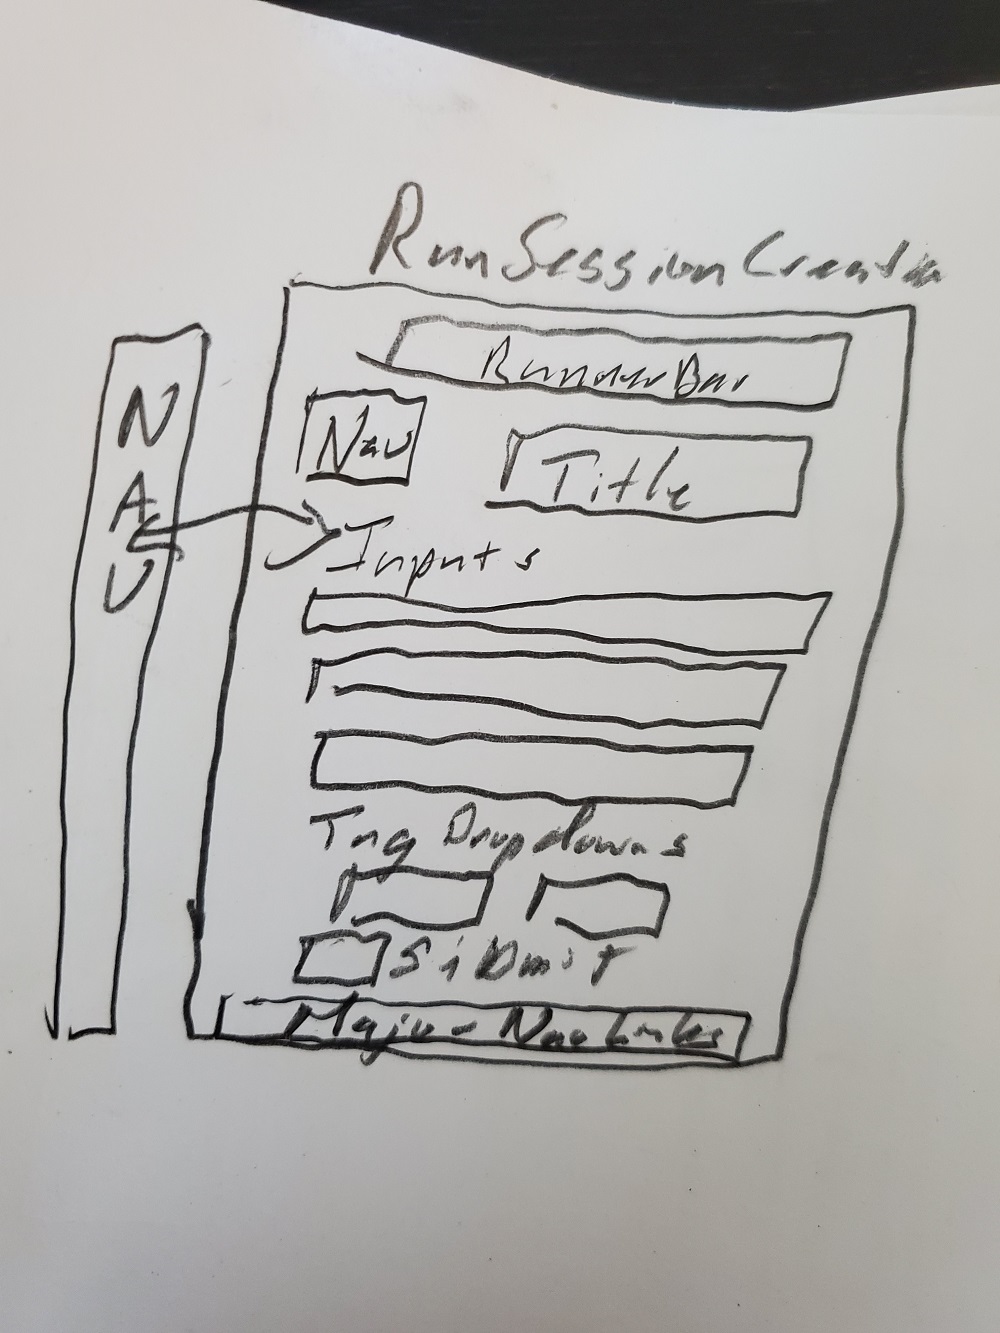 Run Session Creat
Runner Bar
NAV
Nav
Title
Inputs
Tag Dropdowns
Submit
Major Nav Links